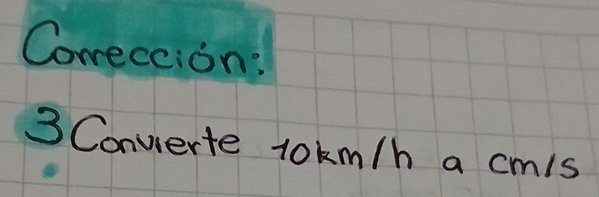 Corrección:
3 Convierte 10km/h a cm/s